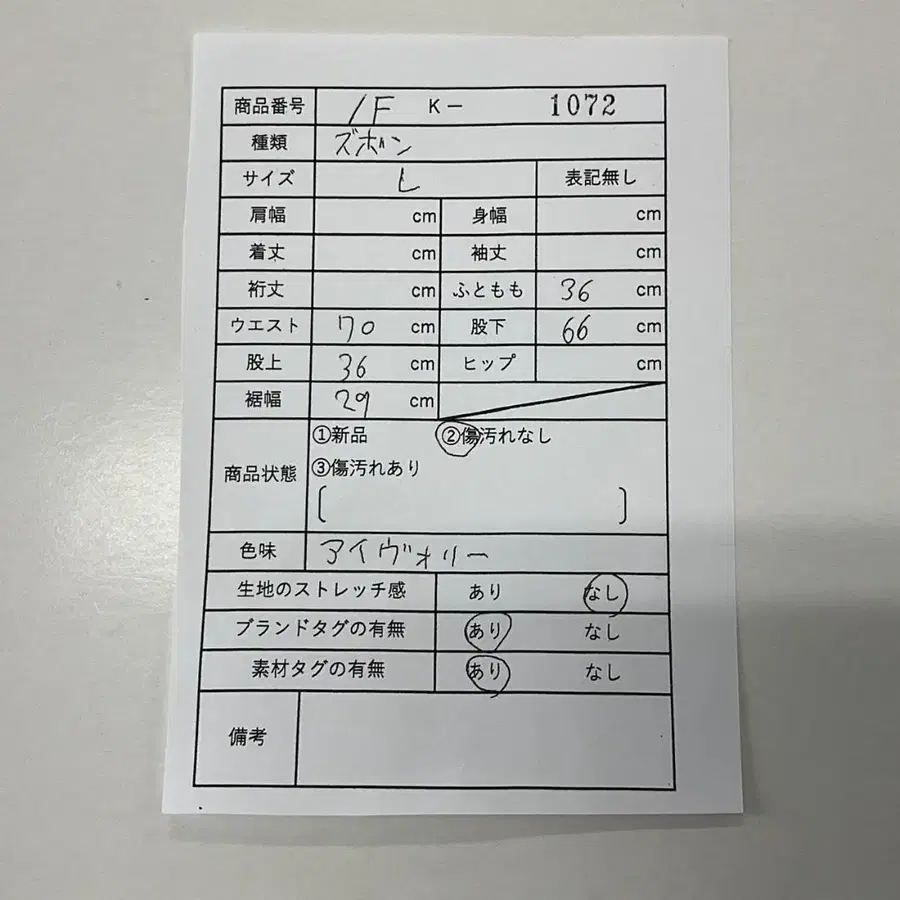 商品番号 1F K- 1072
種類 ズボン
サイズ L 表記無し
肩幅 cm 身幅 cm
着丈 cm 袖丈 cm
裄丈 cm ふともも 36 cm
ウエスト 70 cm 股下 66 cm
股上 36 cm ヒップ cm
裾幅 29 cm
①新品 ②傷汚れなし
商品状態 ③傷汚れあり
[ ]
色味 アイヴォリー
生地のストレッチ感 あり なし
ブランドタグの有無 あり なし
素材タグの有無 あり なし
備考